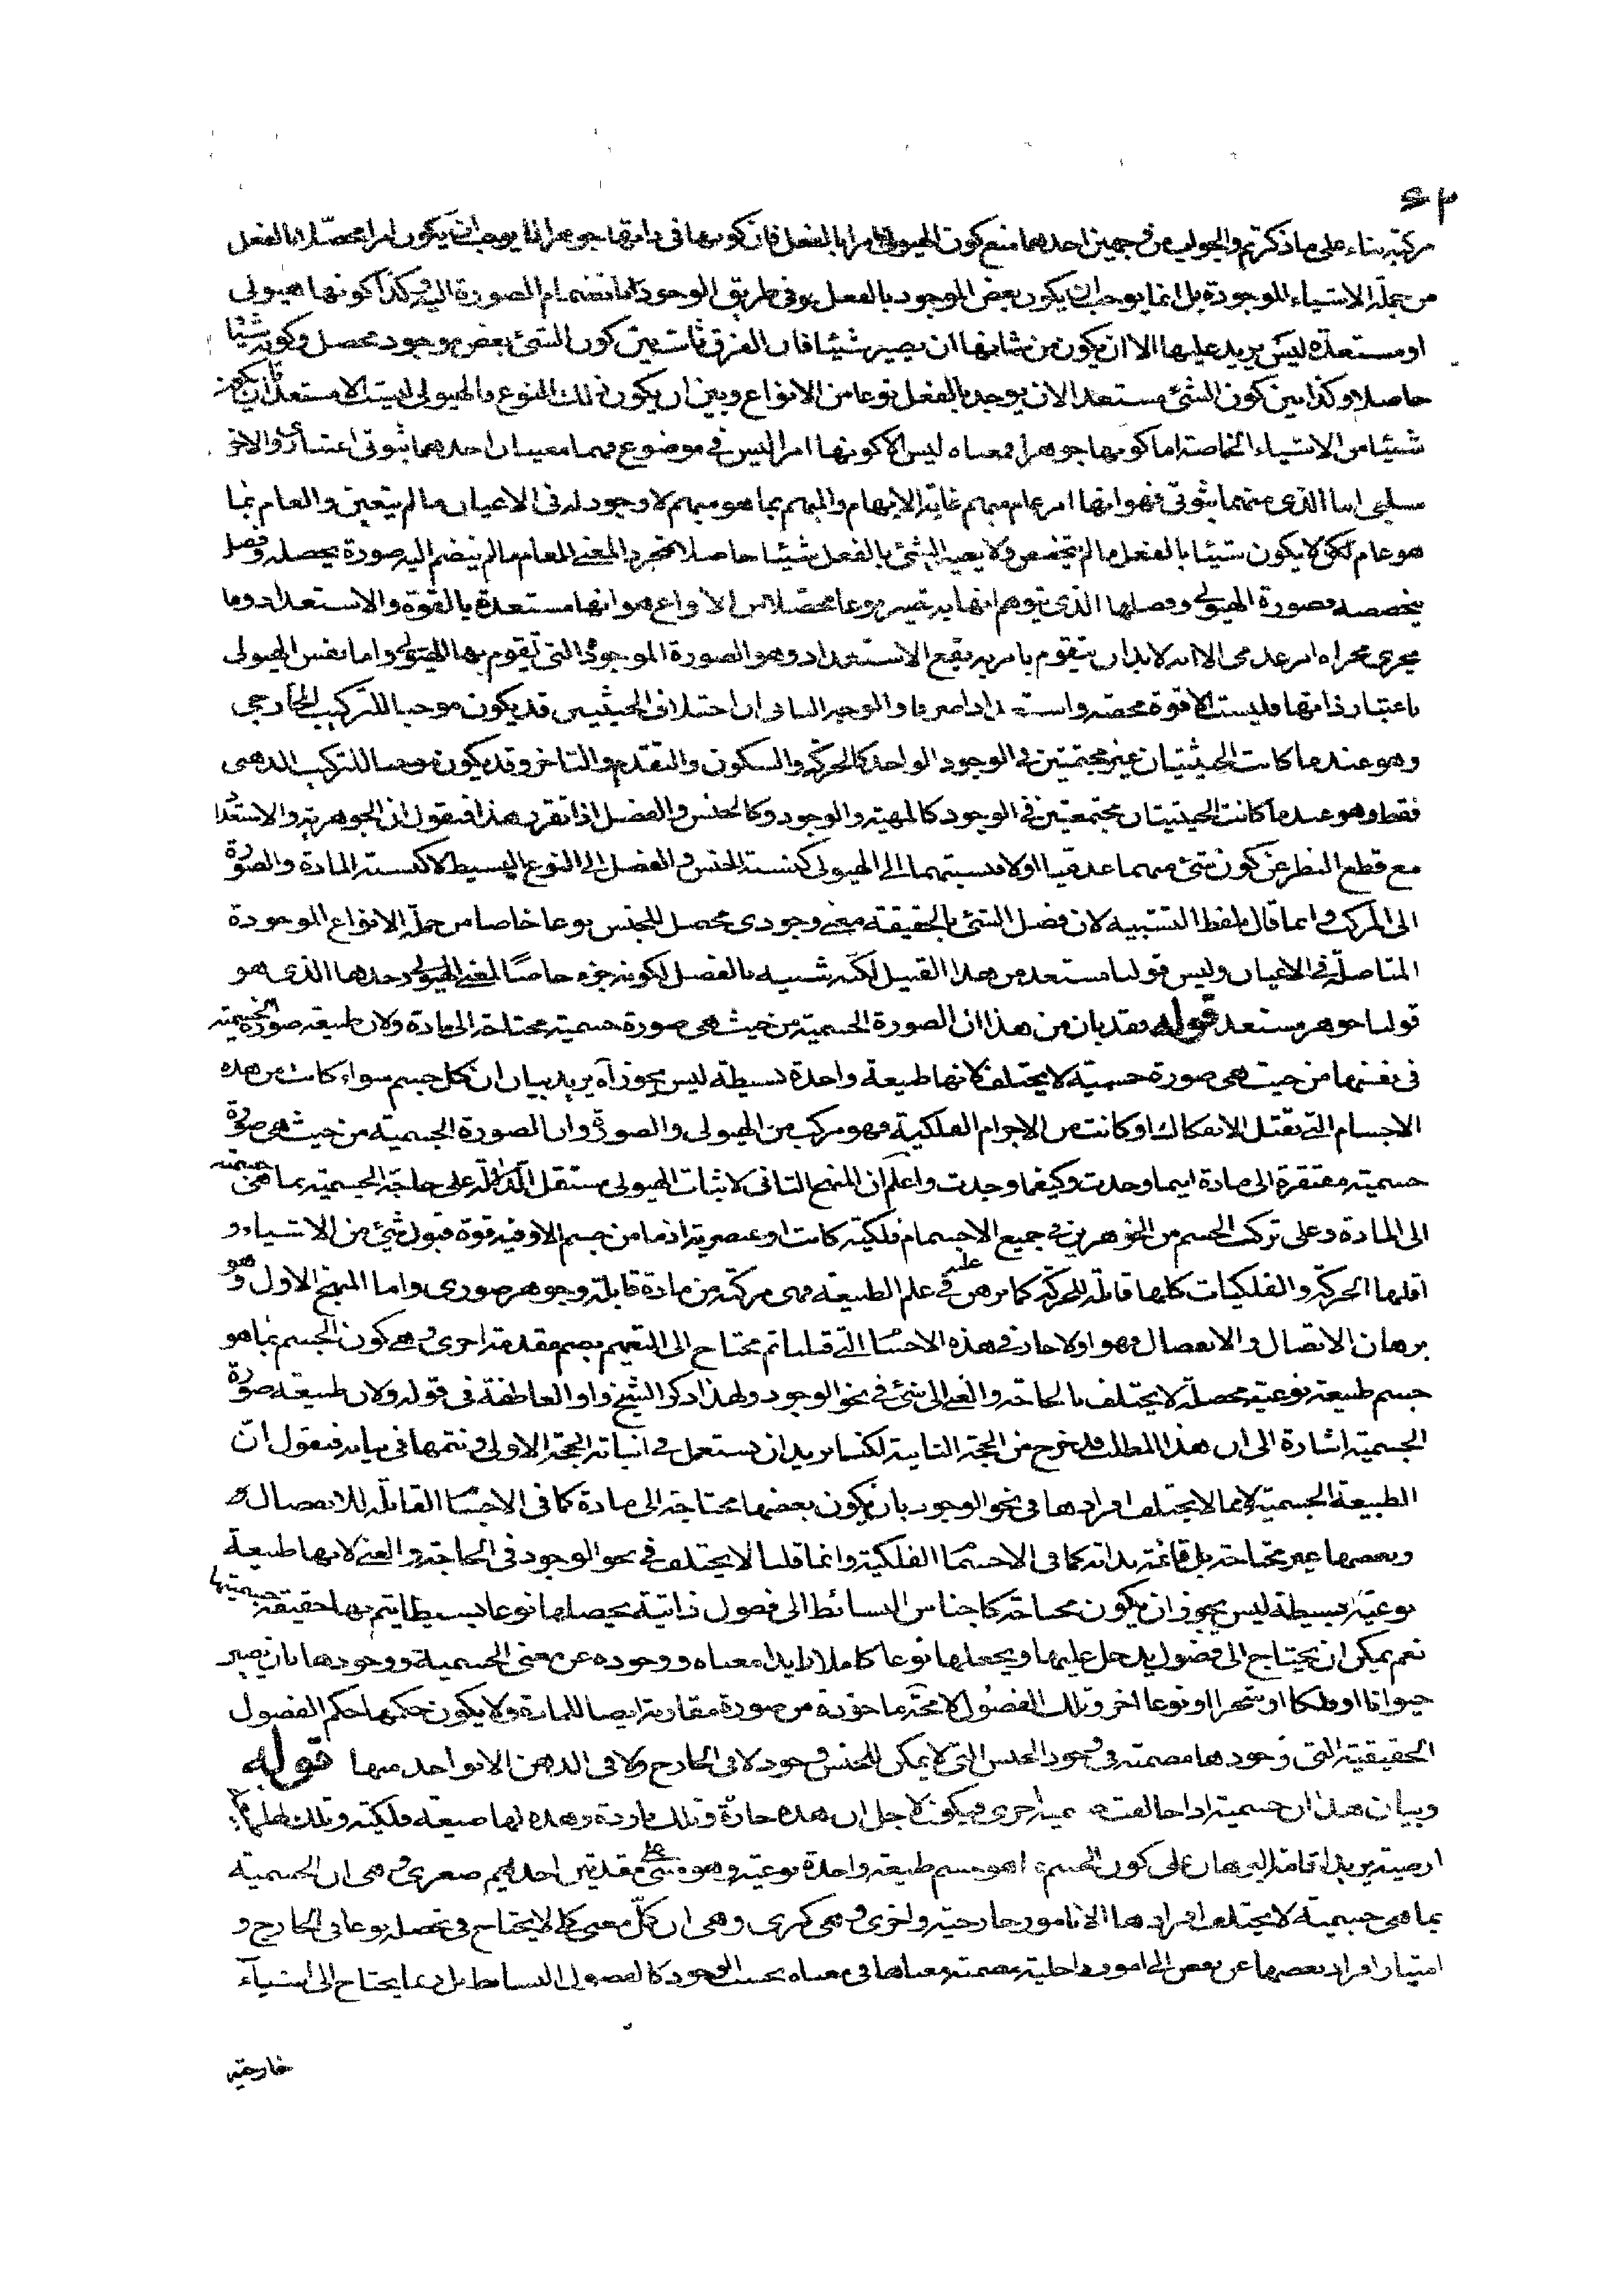 ۶۳
مركبة بناء على ما ذكرتم والجواب من وجهين احدهما منع كون الهيولى امرا بالفعل فان كونها فى ذاتها جوهرا لا يوجب ان يكون امرا محصّلا بالفعل
من جملة الاشياء الموجودة بل انما يوجب ان يكون بعض الموجود بالفعل او فى طريق الوجود بانضمام الصورة اليه وكذا كونها هيولى
او مستعدة ليس يزيد عليها الا ان يكون من شانها ان يصير شيئا فان الفرق ثابت بين كون الشئ بعض موجود محصل وكونه شيئا
حاصلا وكذا بين كون الشئ مستعدا لان يوجد بالفعل نوعا من الانواع وبين ان يكون ذلك النوع والهيولى ليست الا مستعدة ان يكون
شيئا من الاشياء الخاصة اما كونها جوهرا فمعناه ليس الا كونها امرا ليس فى موضوع فهما معنيان احدهما ثبوتى والاخر
سلبى اما الذى منهما ثبوتى فهو انها امر عام مبهم غاية الابهام والمبهم بما هو مبهم لا وجود له فى الاعيان ما لم يتعين والعام بما
هو عام لا يكون شيئا بالفعل ما لم يتخصص ولا يصير الشئ بالفعل شيئا حاصلا بمجرد المعنى العام ما لم ينضم اليه صورة يحصله وفصل
يخصصه وصورة الهيولى وفصلها الذى يتوهم انها به تصير نوعا محصّلا من الانواع هو انها مستعدة بالقوة والاستعداد وما
يجرى مجراه امر عدمى الا انه لا بد ان يتقوم بامر به يقع الاستعداد وهو الصورة الموجودة التى تقوم بها الهيولى واما نفس الهيولى
باعتبار ذاتها فليست الا قوة محضة والوجه الثانى ان اختلاف الحيثيتين قد يكون موجبا للتركيب الخارجى
وهو عندما كانت الحيثيتان غير مجتمعتين فى الوجود الواحد كالحركة والسكون والتقدم والتاخر وقد يكون موجبا للتركيب الذهنى
فقط وهو عندما كانت الحيثيتان مجتمعتين فى الوجود كالمهية والوجود وكالجنس والفصل اذا تقرر هذا فنقول ان الجوهرية والاستعداد
مع قطع النظر عن كون شئ منهما عدميا او لا نسبتهما الى الهيولى كنسبة الجنس والفصل الى النوع البسيط لا كنسبة المادة والصورة
الى المركب وانما قال بلفظ التشبيه لان فصل الشئ بالحقيقة معنى وجودى محصل للجنس نوعا خاصا من جملة الانواع الموجودة
المتاصلة فى الاعيان وليس قولنا مستعد من هذا القبيل لكنه شبيه بالفصل لكونه جزء خاصا لمعنى الهيولى وحدها الذى هو
قولنا جوهر مستعد قوله فقد بان من هذا ان الصورة الجسمية من حيث هى صورة جسمية محتاجة الى مادة ولان طبيعة صورة الجسمية
فى نفسها من حيث هى صورة جسمية لا يختلف فانها طبيعة واحدة بسيطة ليس يجوز آه يريد بيان ان كل جسم سواء كانت من هذه
الاجسام التى تقبل الانفكاك او كانت من الاجرام الفلكية فهو مركب من الهيولى والصورة وان الصورة الجسمية من حيث هى صورة
جسمية مفتقرة الى مادة اينما وجدت وكيفما وجدت واعلم ان المنهج الثانى لاثبات الهيولى مستقل الدلالة على حاجة الجسمية بما هى جسمية
الى المادة وعلى تركب الجسم من الجوهرين فى جميع الاجسام فلكية كانت او عنصرية اذ ما من جسم الا وفيه قوة قبول شئ من الاشياء و
اقلها الحركة والفلكيات كلها قابلة للحركة كما برهن عليه فى علم الطبيعة فهى مركبة من مادة قابلة وجوهر صورى واما المنهج الاول وهو
برهان الاتصال والانفصال فهو اولا جار فى هذه الاجسام التى قبلنا ثم محتاج الى التعميم بضم مقدمة اخرى وهى كون الجسم بما هو
جسم طبيعة نوعية محصلة لا يختلف بالحاجة والغنى الى شئ فى نحو الوجود ولهذا ذكر الشيخ واو العاطفة فى قوله ولان طبيعة صورة
الجسمية اشارة الى ان هذا المطلب قد خرج من الحجة الثانية لكنا نريد ان نستعمل فى اثباته الحجة الاولى ونتمها فى بيانه فنقول ان
الطبيعة الجسمية لا يختلف افرادها فى نحو الوجود بان يكون بعضها محتاجة الى مادة كما فى الاجسام القابلة للانفصال و
وبعضها غير محتاجة بل قائمة بذاته كما فى الاجسام الفلكية وانما قلنا لا يختلف فى نحو الوجود فى الحاجة والغنى لانها طبيعة
نوعية بسيطة ليس يجوز ان يكون محتاجة كاجناس البسائط الى فصول ذاتية يحصلها نوعا بسيطا يتم بها حقيقة جسميتها
نعم يمكن ان يحتاج الى فصول يدخل عليها ويجعلها نوعا كاملا زايدا معناه ووجوده عن معنى الجسمية ووجودها بان يصير
حيوانا او فلكا او شجرا او نوعا اخر وتلك الفصول لا محة ماخوذة من صورة مقارنة ايضا للمادة ولا يكون حكمها حكم الفصول
الحقيقية التى وجودها مضمنة فى وجود الجنس التى لا يمكن للجنس وجود لا فى الخارج ولا فى الذهن الا بواحد منها قوله
وبيان هذا ان جسمية اذا خالفت جسمية اخرى فيكون لاجل ان هذه حارة وتلك باردة وهذه لها طبيعة فلكية وتلك لها طبيعة
ارضية يريد اقامة البرهان على كون الجسم بما هو جسم طبيعة واحدة نوعية وهو مبنى على مقدمتين احديهما صغرى وهى ان الجسمية
بما هى جسمية لا يختلف افرادها الا بامور خارجية واخرى وهى كبرى وهى ان كل معنى كلى لا يحتاج فى تحصله نوعا فى الخارج و
امتياز افراده بعضها عن بعض الى امور داخلية مضمنة معناها فى معناه بحسب الوجود كالفصول البسائط بل انما يحتاج الى اشياء
خارجية